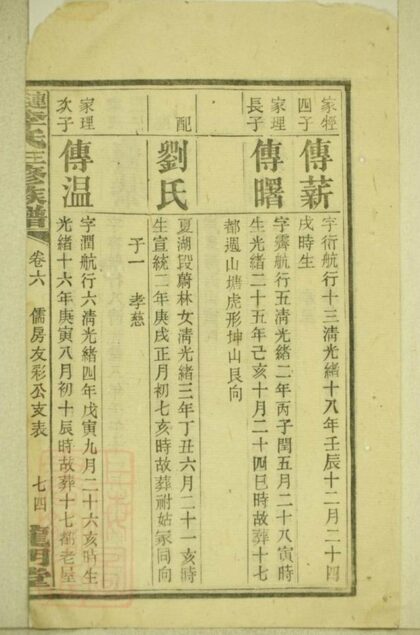 家牼四子
傳薪
字衍航行十三清光緒十八年壬辰十二月二十四
戌時生
家理長子
傳曙
字霽航行五清光緒二年丙子閏五月二十八寅時
生光緒二十五年己亥十月二十四巳時故葬十七
都週山塘虎形坤山艮向
配
劉氏
夏湖段蔚林女清光緒三年丁丑六月二十一亥時
生宣統二年庚戌正月初七亥時故葬祔姑冢同向
子一 孝慈
家理次子
傳温
字潤航行六清光緒四年戊寅九月二十六亥時生
光緒十六年庚寅八月初十辰時故葬十七都老屋
漣李氏三修族譜
卷六
儒房友彩公支表
七四
龍門堂